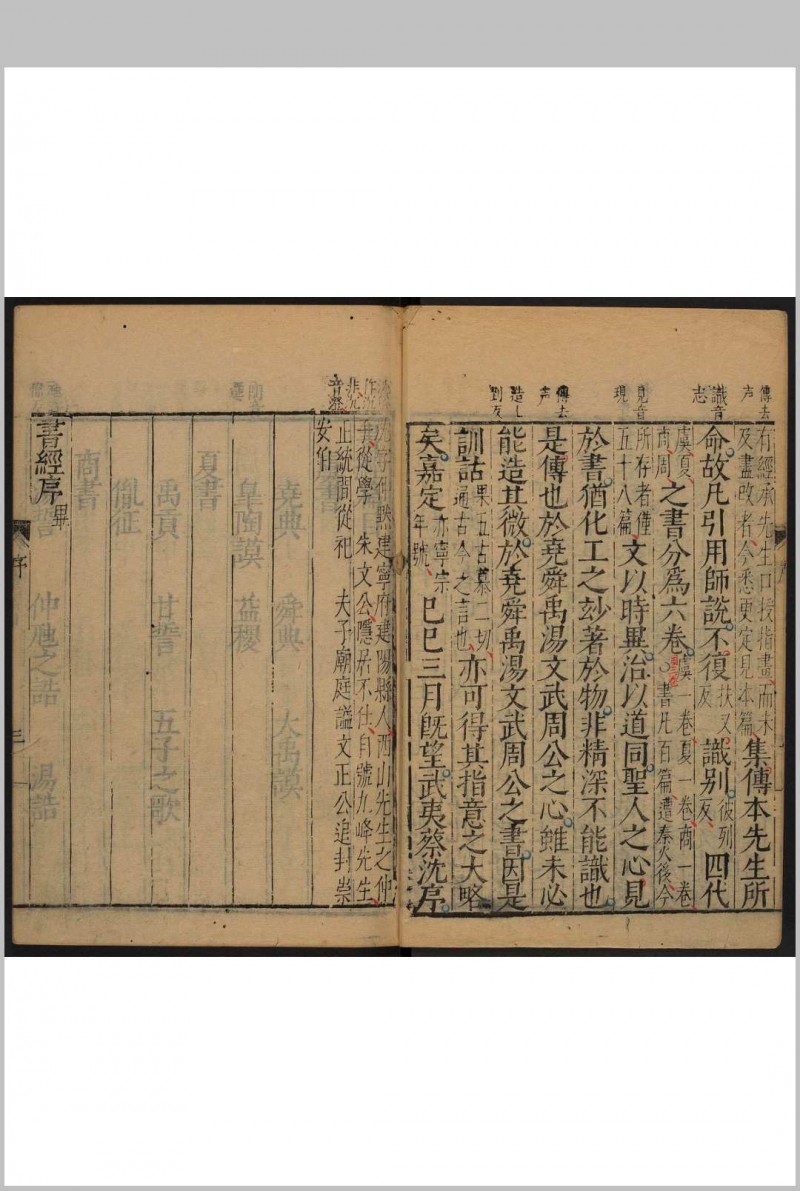 傳去
声
識音
志
見音
現
傳去
声
造七
到反
有經承先生口授指畫而未
及盡改者今悉更定見本篇
集傳本先生所
命故凡引用師說不復扶又反識別彼列反四代
虞夏商周之書分爲六卷虞一卷夏一卷商一卷
書凡百篇遭秦火後今
所存者僅五十八篇文以時異治以道同聖人之心見
於書猶化工之妙著於物非精深不能識也
是傳也於堯舜禹湯文武周公之心雖未必
能造其微於堯舜禹湯文武周公之書因是
訓詁果五古慕二切通古今之言也亦可得其指意之大略
矣嘉定亦寧宗年號己巳三月旣望武夷蔡沈序
沈字仲默建寧府建陽縣人西山先生之仲
子從學 朱文公隱居不仕自號九峰先生
正統間從祀 夫子廟庭謚文正公追封崇
安伯
書經序畢
序
三